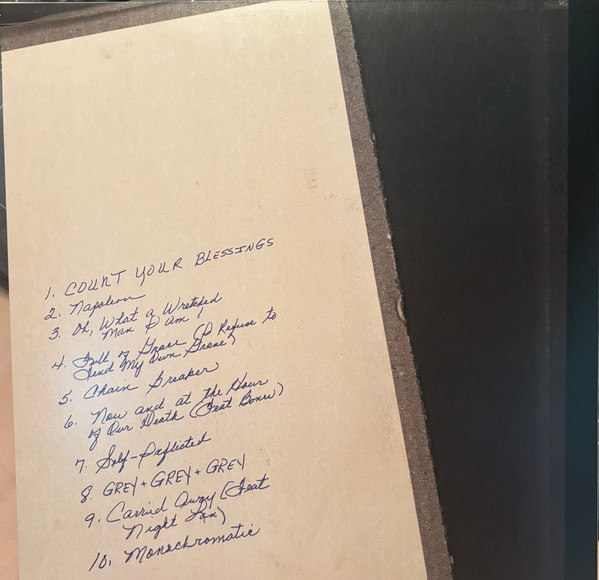 1. COUNT YOUR BLESSINGS
2. Napoleon
3. Oh, What a Wretched
Man I Am!
4. Fall of Grace (I Refuse to
Send My Own Grave)
5. Chain Breaker
6. Now and at the Hour
of Our Death (feat Bones)
7. Self-Inflicted
8. GREY + GREY + GREY
9. Carried Away (feat
Night Lan)
10. Monochromatic